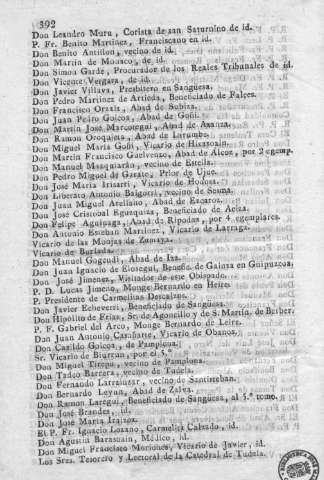 392
Don Leandro Muru, Corista de san Saturnino de id.
P. Fr. Benito Martinez, Franciscano en id.
Don Benito Antillon, vecino de id.
Don Martin de Monaco, de id.
Don Simon Garde, Procurador de los Reales Tribunales de id.
Don Vicente Vergara, de id.
Don Javier Villava, Presbitero en Sangüesa.
Don Pedro Martinez de Artieda, Beneficiado de Falces.
Don Francisco Orzaiz, Abad de Subiza.
Don Juan Pedro Goicoa, Abad de Goñi.
Don Martin José Marcotegui, Abad de Asanza.
Don Ramon Oroquieta, Abad de Larumbe.
Don Miguel María Goñi, Vicario de Hizasoain.
Don Martin Francisco Guelvenzo, Abad de Alcoz, por 2 exemp.
Don Manuel Mosquiarán, vecino de Estella.
Don Pedro Miguel de Garate, Prior de Ujué.
Don José María Irisarri, Vicario de
Don Liberato Antonio Baigorri, vecino de Sesma.
Don Juan Miguel Arellano, Abad de Ezcaroz.
Don José Cristobal Eguzquiza, Beneficiado de Aeiza.
Don Felipe Aguinaga, Abad de Ripodas, por 4 exemplares.
Don Antonio Esteban Martinez, Vicario de Larraga.
Vicario de las Monjas de Zumaya.
Vicario de Burlada.
Don Manuel Gogendi, Abad de Iza.
Don Juan Ignacio de Elosegui, Benefic. de Gainza en Guipuzcoa.
Don José Jimenez, Visitador de este Obispado.
P. D. Lucas Jimeno, Monge Bernardo en Heire.
P. Presidente de Carmelitas Descalzos.
Don Javier Echeverri, Beneficiado de Sangüesa.
Don Hipolito de Erias, Sr. de Agoncillo y de S. Martin, de Berber.
P. F. Gabriel del Arco, Monge Bernardo de Leire.
Don Juan Antonio Cambarte, Vicario de Obanos.
Don Casildo Goicoa, de Pamplona.
Sr. Vicario de Biurrun, por el 5.º
Don Miguel Tiregui, vecino de Pamplona.
Don Tadeo Barrera, vecino de Tudela.
Don Fernando Larrainzar, vecino de Santisteban.
Don Bernardo Leyun, Abad de Zalva.
Don Ramon Laregui, Beneficiado de Sangüesa, al 5.º tomo.
Don José Brandes, id.
Don José María Irajzoz
El P. Fr. Ignacio Lozano, Carmelita Calzado, id.
Don Agustin Barasoain, Médico, id.
Don Miguel Francisco Moriones, Vicario de Javier, id.
Los Sres. Tesorero y Lectoral de la Catedral de Tudela.